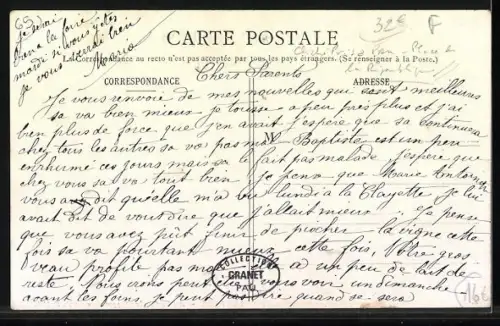 65
Je serai
dans la foire
mardi si vous y êtes
je vous verrai bien
Maria
32€ F
CARTE POSTALE
La Correspondance au recto n'est pas acceptée par tous les pays étrangers. (Se renseigner à la Poste.)
CORRESPONDANCE
ADRESSE
Chers Parents
Je vous renvoie de mes nouvelles qui sont meilleures
sa va bien mieux je tousse a peu près plus et j'ai
bien plus de force que j'en avait j'espère que sa continuera
chez tous les autres sa va pas mal Baptiste est un peu
M
enrhumé ces jours mais sa le fait pas malade j'espère que
chez vous sa va tout bien je pense que Marie
vous dit qu'elle m'a vu lundi a la Clayette je lui
avait dit de vous dire que j'allait mieux. Je pense
que vous avez pût finir de piocher la vigne cette
fois sa va pourtant mieux cette fois. Votre gros
veau profite pas mal a un peu de lait de
reste. Nous irons peut être vous voir un dimanche
avant les foins je peut pas dire quand se sera
COLLECTIONS
GRANET
PAU
16€